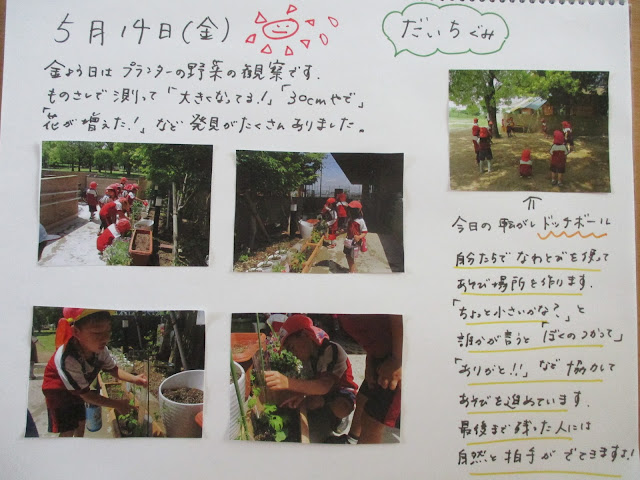 5月14日(金)
だいちぐみ
金よう日は プランターの野菜の観察です.
ものさしで測って「大きくなってる!」「30cmやで」
「花が増えた!」など 発見がたくさんありました。
今日の転がしドッチボール
自分たちで なわとびを使って
あそび場所を作ります.
「ちょっと小さいかな?」と
誰かが言うと「ぼくのつかって」
「ありがと!!」など 協力して
あそびを進めています.
最後まで残った人には
自然と拍手がでてきますよ!